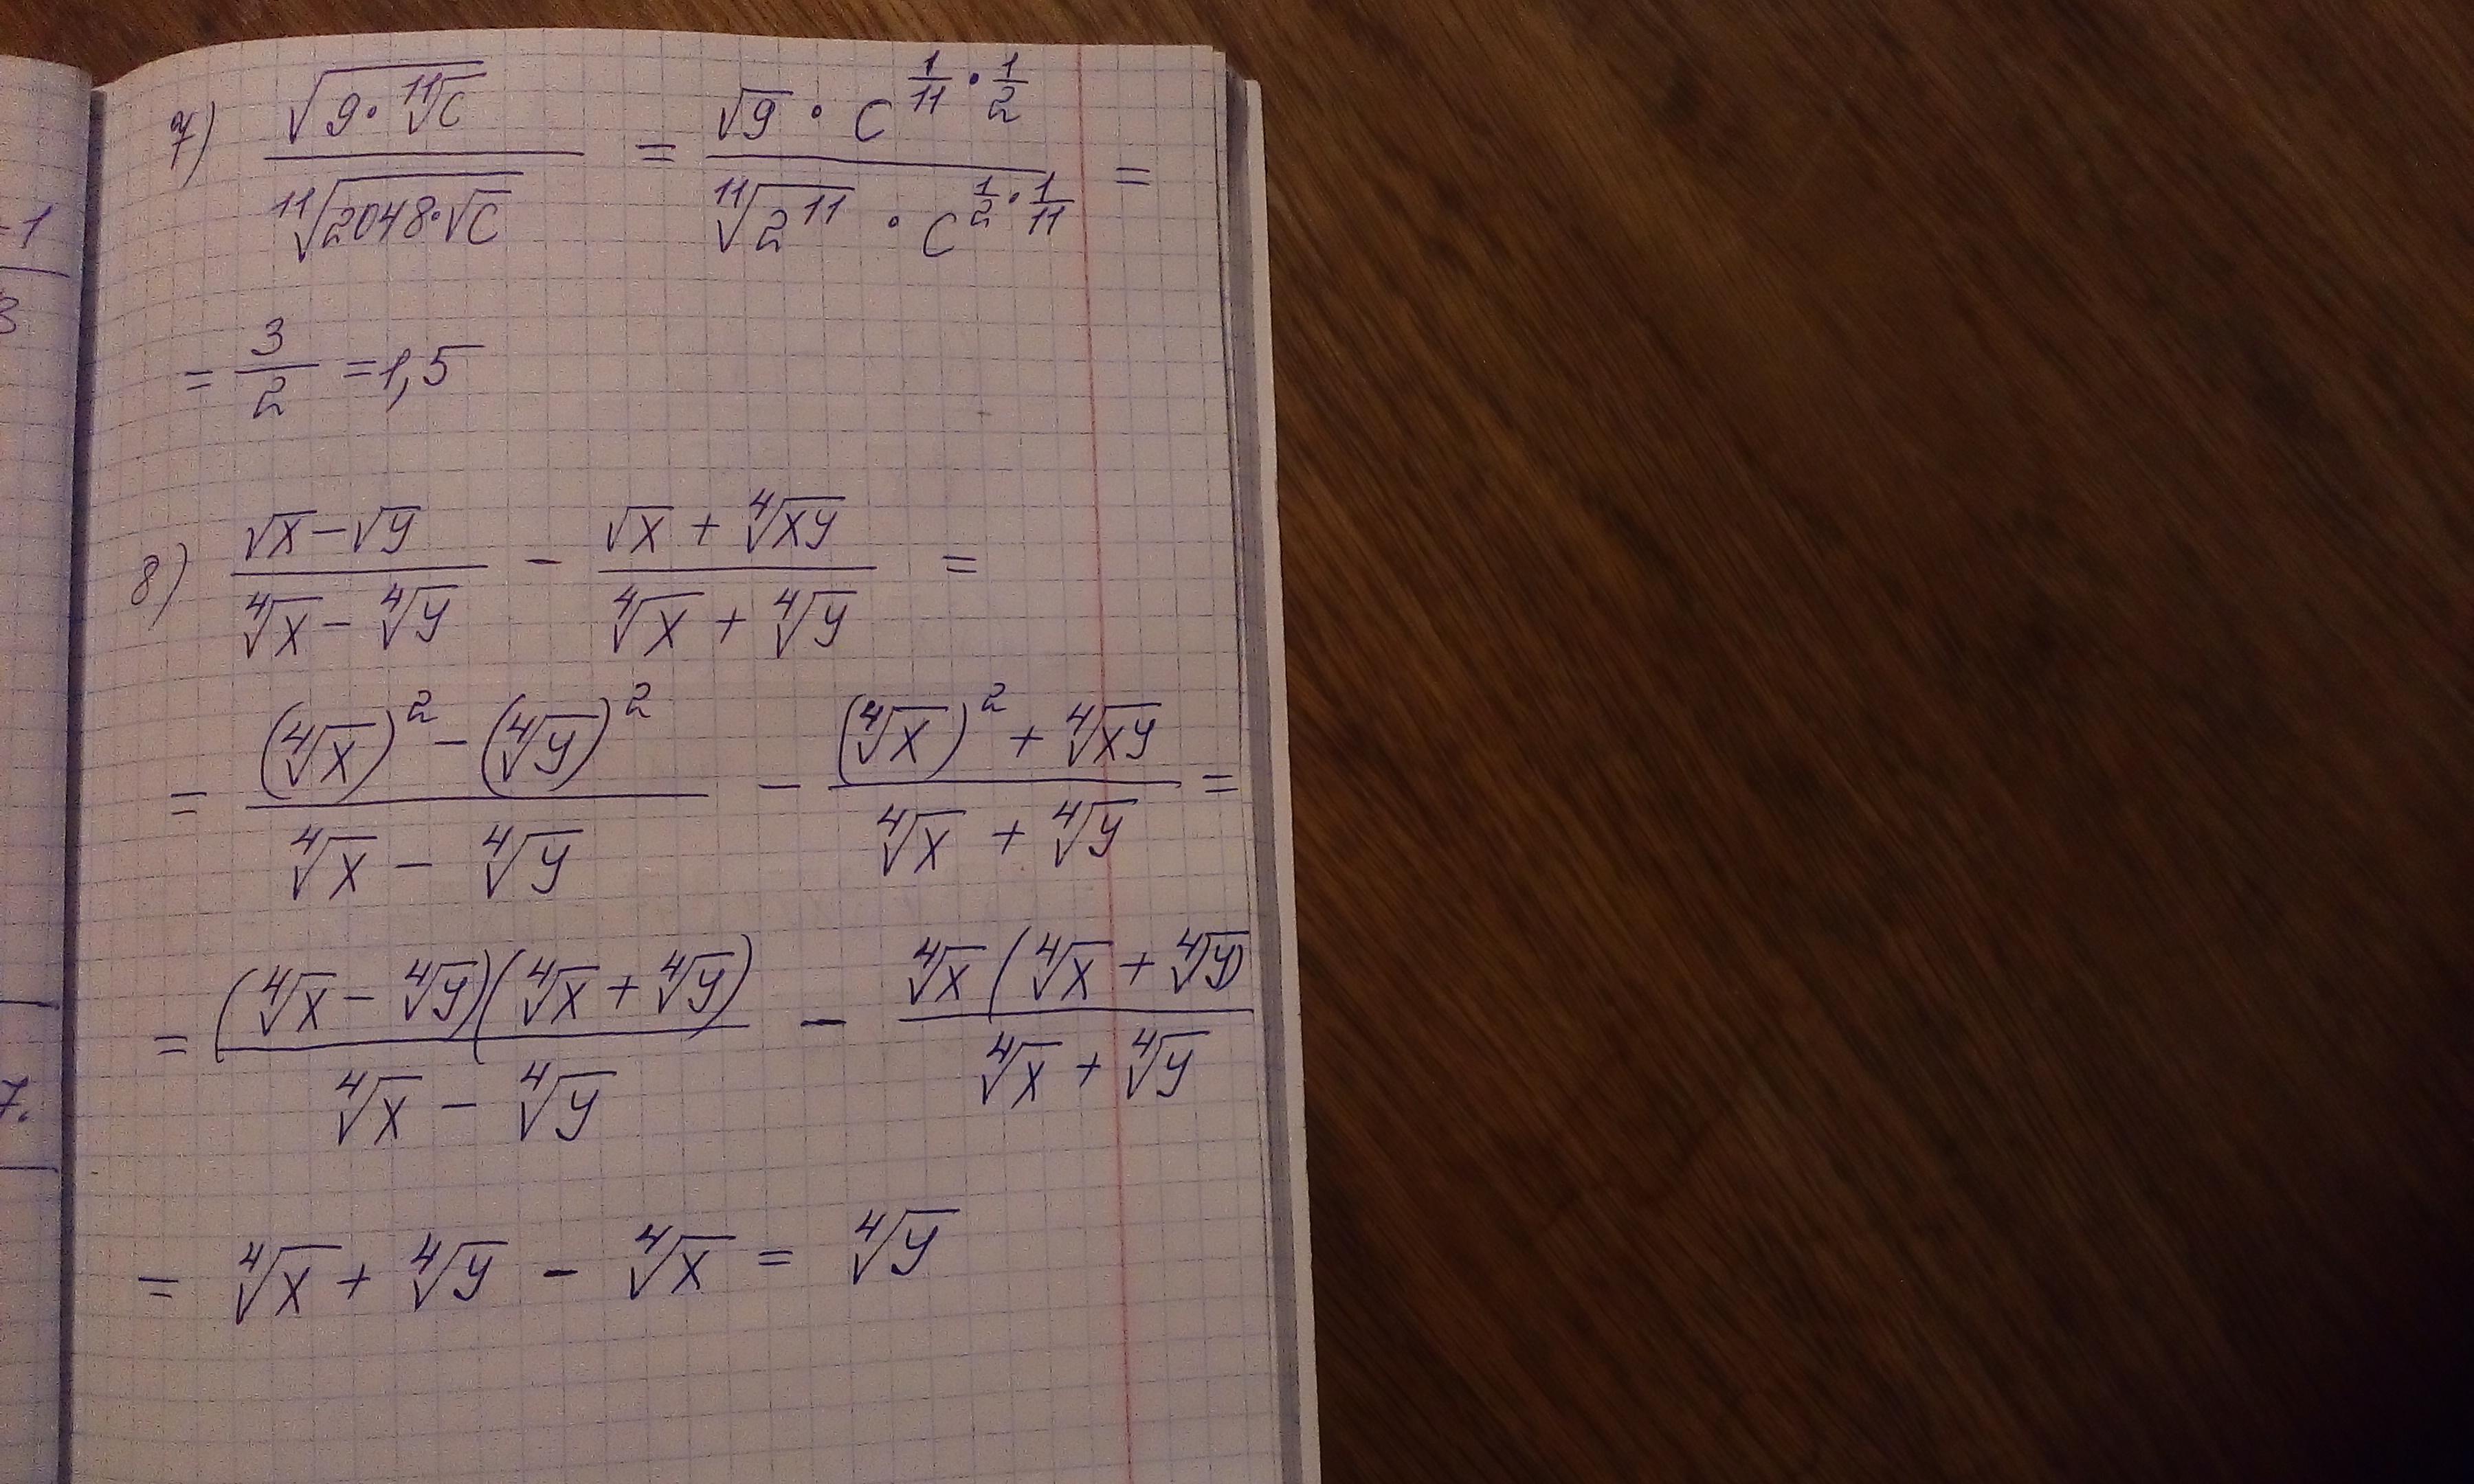 -1
3
7.
7) √(9·¹¹√c) / ¹¹√(2048·√c) = √9 · c^(1/11 · 1/2) / (¹¹√(2¹¹) · c^(1/2 · 1/11)) =
= 3/2 = 1,5
8) (√x − √y) / (⁴√x − ⁴√y) − (√x + ⁴√(xy)) / (⁴√x + ⁴√y) =
= ((⁴√x)² − (⁴√y)²) / (⁴√x − ⁴√y) − ((⁴√x)² + ⁴√(xy)) / (⁴√x + ⁴√y) =
= (⁴√x − ⁴√y)(⁴√x + ⁴√y) / (⁴√x − ⁴√y) − ⁴√x(⁴√x + ⁴√y) / (⁴√x + ⁴√y)
= ⁴√x + ⁴√y − ⁴√x = ⁴√y